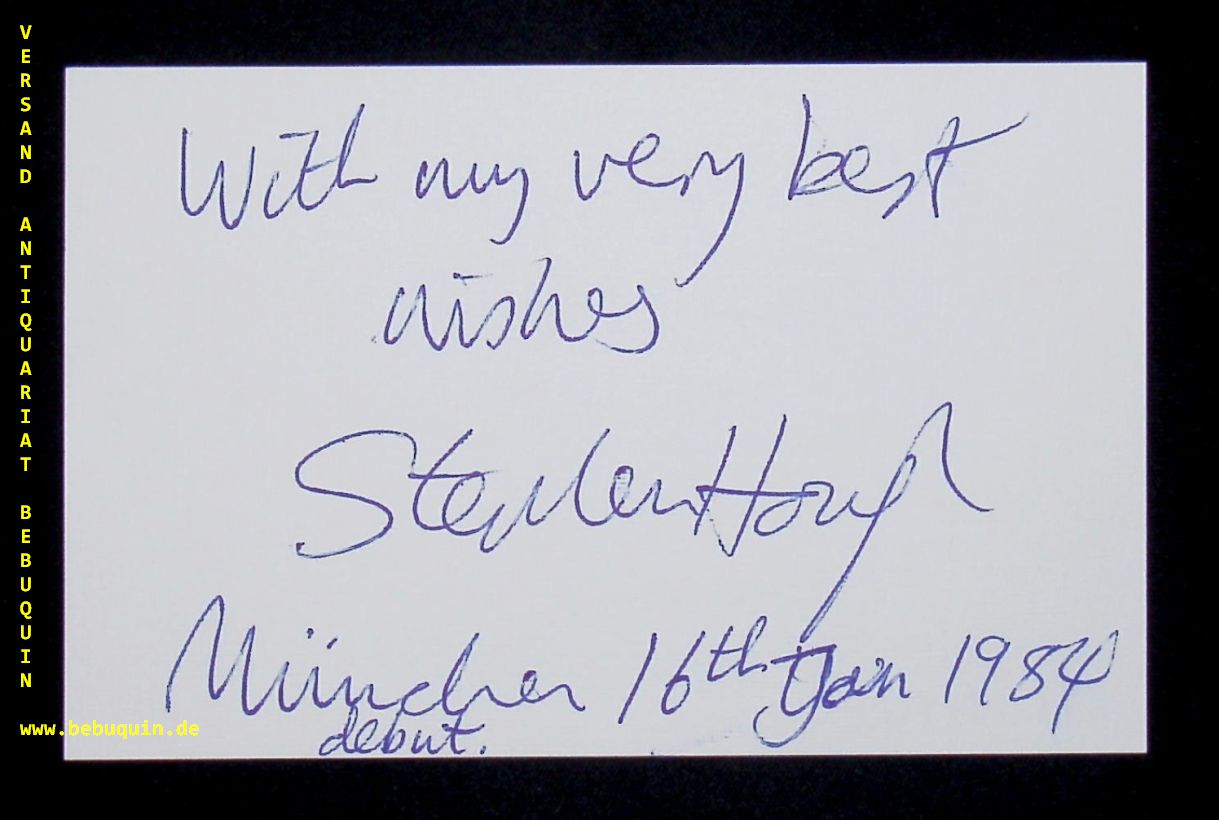 VERSAND ANTIQUARIAT BEBUQUIN
With my very best
wishes
Stephen Hough
München 16th Jan 1984
debut.
www.bebuquin.de